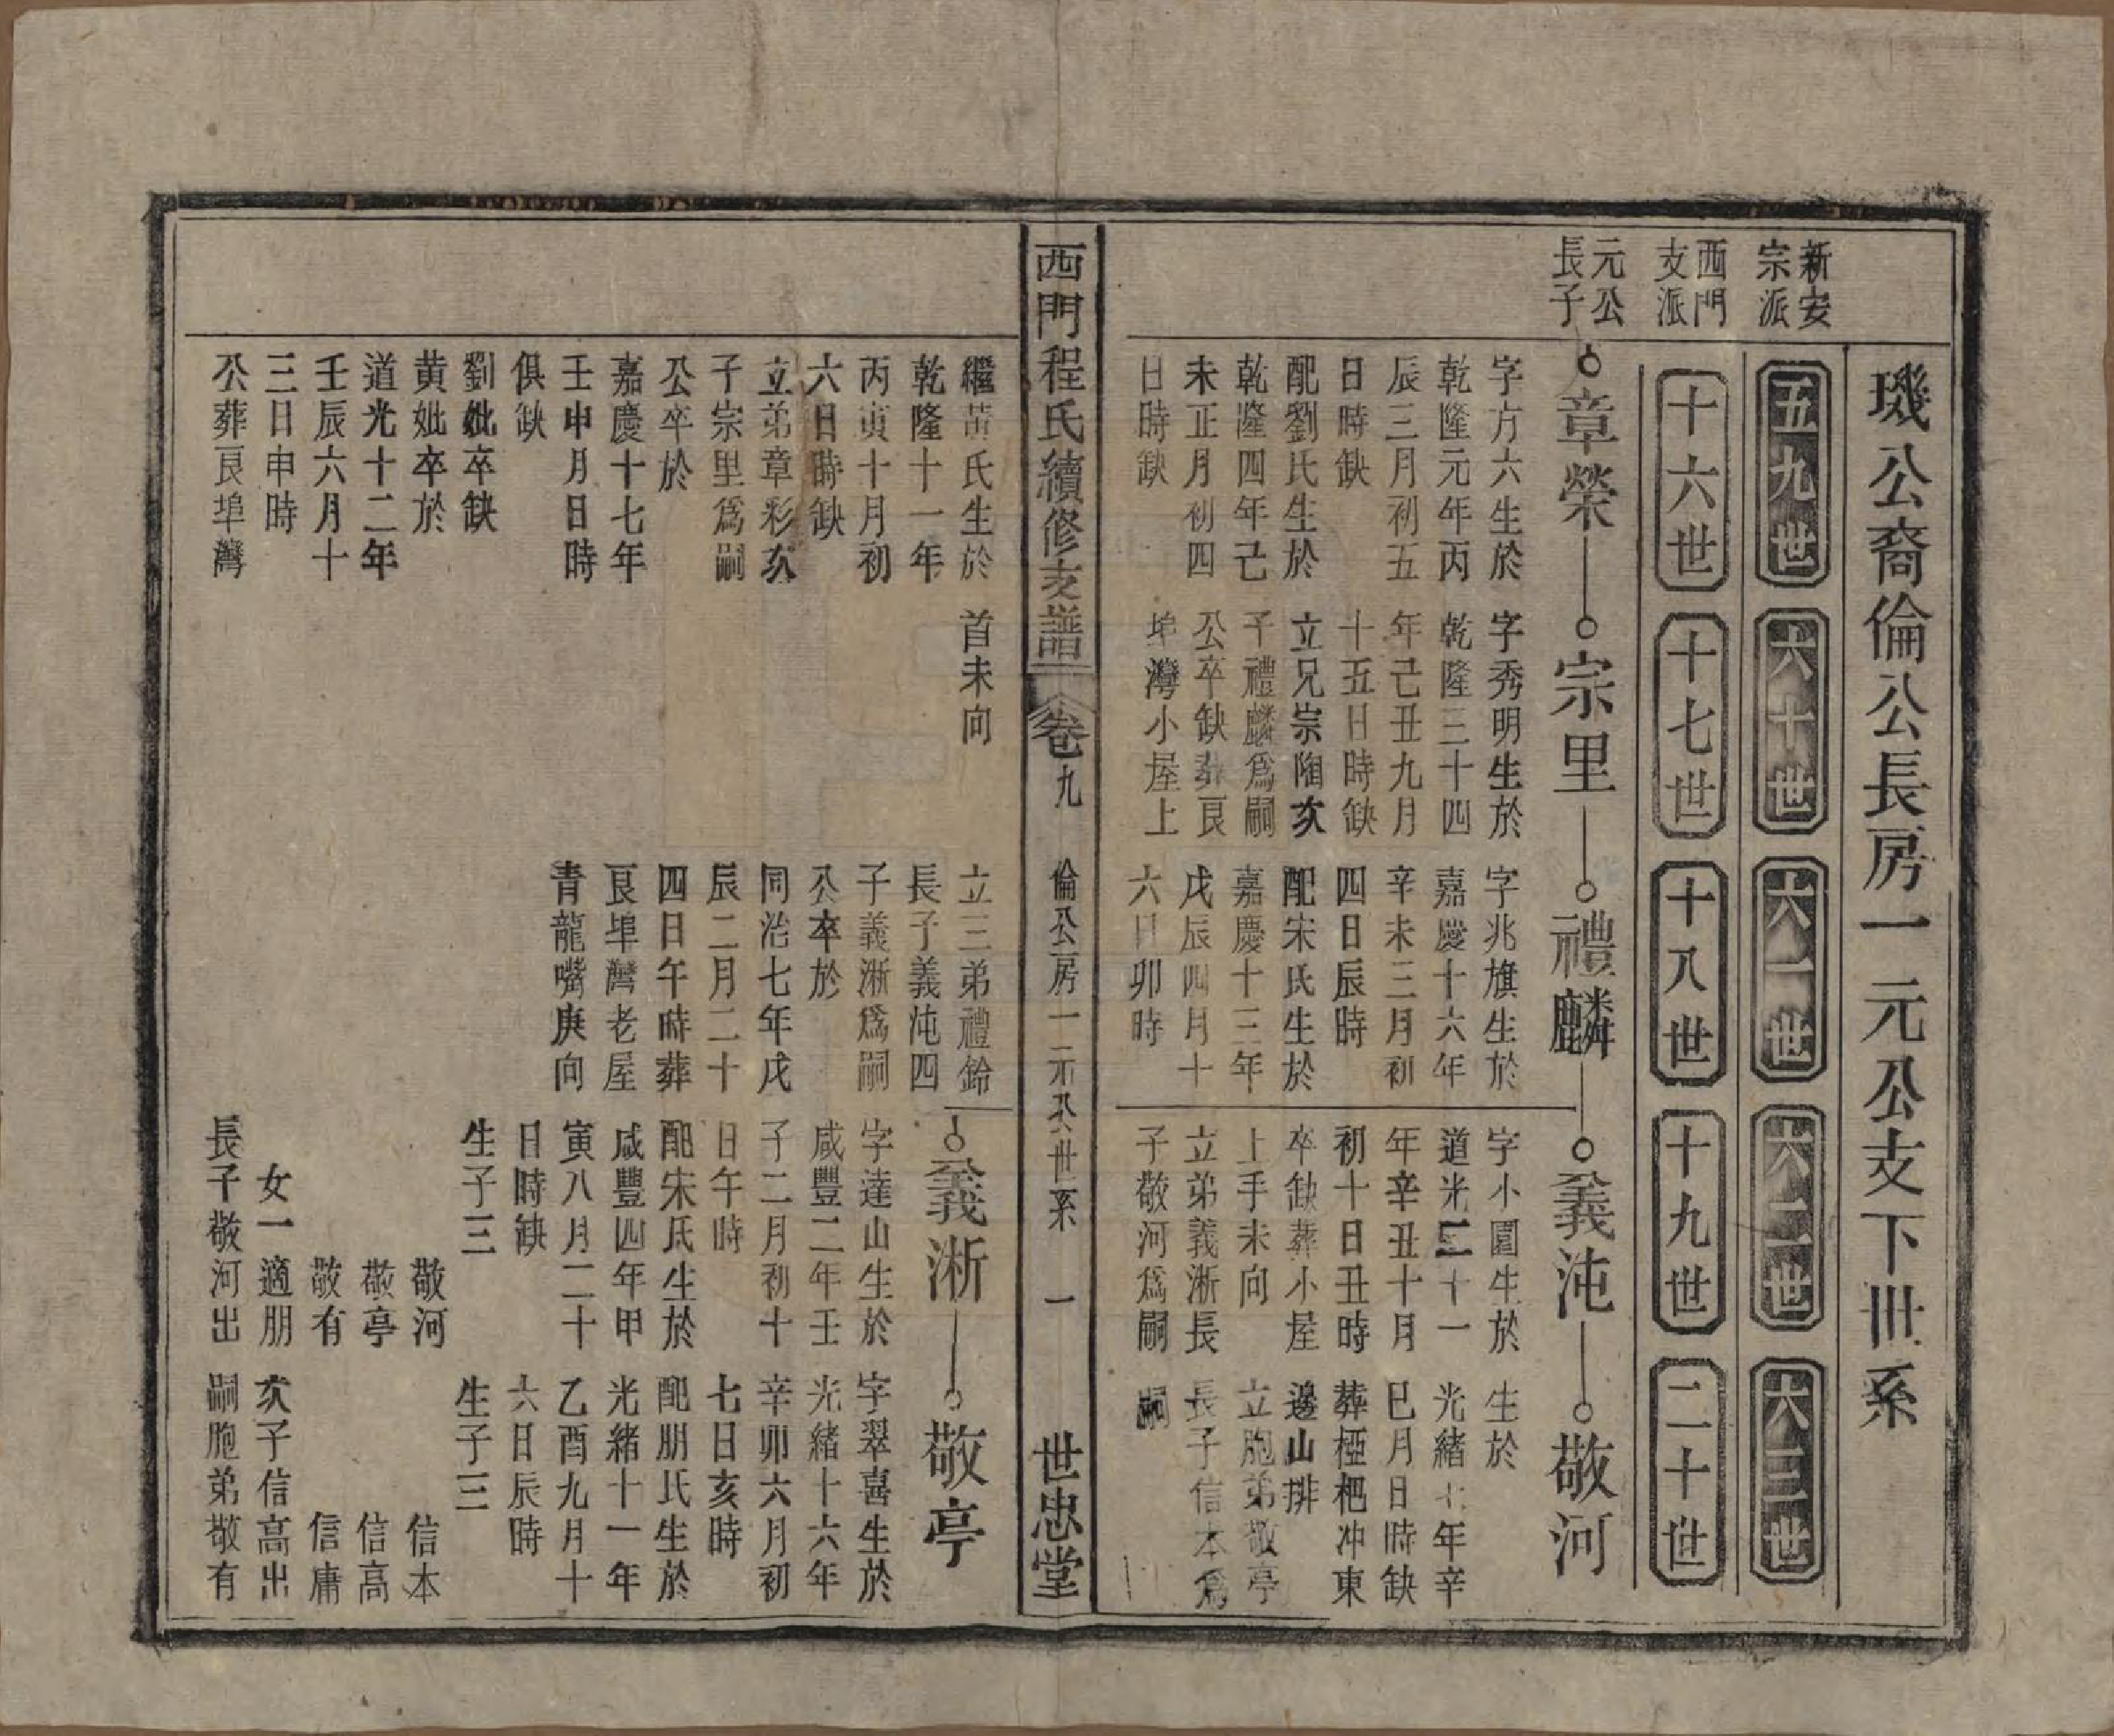 璣公裔倫公長房一元公支下世系
新安
宗派
五九世
六十世
六一世
六二世
六三世
西門
支派
十六世
十七世
十八世
十九世
二十世
元公
長子
章榮
宗里
禮麟
義沌
敬河
字方六生於
乾隆元年丙
辰三月初五
日時缺
配劉氏生於
乾隆四年己
未正月初四
日時缺
字秀明生於
乾隆三十四
年己丑九月
十五日時缺
立兄宗陶次
子禮麟爲嗣
公卒缺葬艮
埠灣小屋上
字兆旗生於
嘉慶十六年
辛未三月初
四日辰時
配宋氏生於
嘉慶十三年
戊辰四月十
六日卯時
字小園生於
道光二十一
年辛丑十月
初十日丑時
卒缺葬小屋
上手未向
立弟義淅長
子敬河爲嗣
生於
光緒七年辛
巳月日時缺
葬極杷冲東
邊山排
立胞弟敬亭
長子信本爲
嗣
西門程氏續修支譜
卷九
倫公房一元公世系
一
世忠堂
繼黃氏生於
乾隆十一年
丙寅十月初
六日時缺
立弟章彩次
子宗里爲嗣
公卒於
嘉慶十七年
壬申月日時
俱缺
劉妣卒缺
黃妣卒於
道光十二年
壬辰六月十
三日申時
公葬艮埠灣
首未向
立三弟禮鈴
長子義沌四
子義淅爲嗣
公卒於
同治七年戊
辰二月二十
四日午時葬
艮埠灣老屋
青龍嘴庚向
義淅
敬亭
字達山生於
咸豐二年壬
子二月初十
日午時
配宋氏生於
咸豐四年甲
寅八月二十
日時缺
生子三
敬河
敬亭
敬有
女一適朋
長子敬河出
字翠喜生於
光緒十六年
辛卯六月初
七日亥時
配朋氏生於
光緒十一年
乙酉九月十
六日辰時
生子三
信本
信高
信庸
次子信高出
嗣胞弟敬有